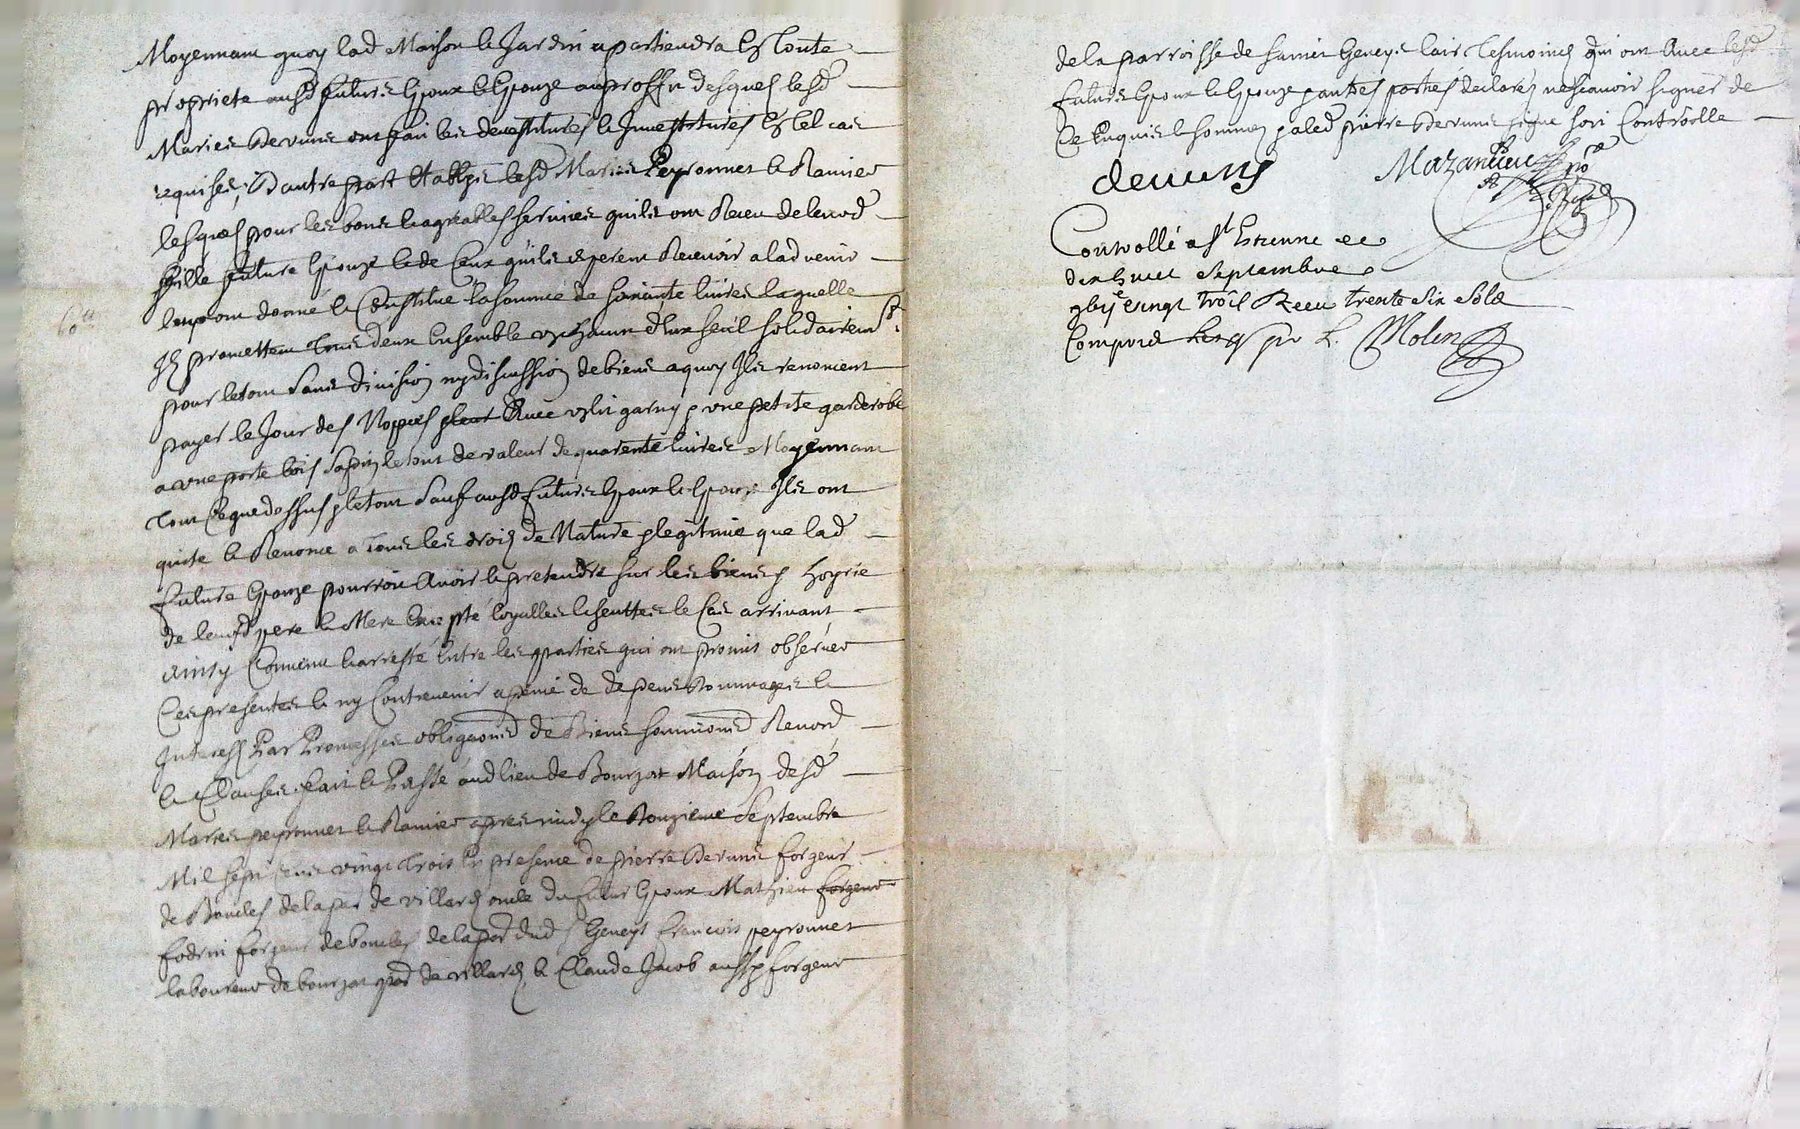 Moyennant quoy lad Maison le Jardin apartiendra En toute
propriete ausd futurs Epoux & Epouze au proffit desquels lesd
Maries Devuns ont fait les devestitures & Investitures En tel cas
requises, D'autre part Etablys lesd Maries Peyronnet & Ramier
lesquels pour les bons & agreables services quils ont Receu de leurd
fille future Epouze & de Ceux quils esperent Recevoir a ladvenir
luy ont donné & Constitué la somme de soixante livres laquelle
60ll
Ils promettent tous deux Ensemble un chacun d'Eux seul solidairemt
pour le tout sans division ny discussion de biens a quoy Ils renoncent
payer le Jour des Nopces Avec un lit garny une petite garderobe
a une porte bois sapin le tout de valeur de quarente livres Moyennant
tout Ce que dessus le tout sauf ausd futurs Epoux & Epouze Ils ont
quité & Renoncé a tous les droits de Nature legitime que lad
future Epouze pourroit Avoir & pretendre sur les biens hoyrie
de leursd pere & Mere Excepté loyalles Escheuttes le Cas arrivant
ainsy Convenu & arresté Entre les parties qui ont promis observer
Ces presentes & ny Contrevenir a peine de depens Dommages &
Interests Par Promesses obligaons de Biens soumissions Renond
& Clauses fait & Passé aud lieu de Bourzat Maison desd
Maries peyronnet & Ramier apres midy le Douzieme Septembre
Mil sept cens vingt trois En presence de pierre Devuns forgeur
de Boucles de la par de villars oncle du futur Epoux Mathieu forgeur
fodrin forgeur de boucles de la par dud St Geneys francois peyronnet
laboureur de bourzat par de villars & Claude Jacob aussy forgeur
de la parroisse de sainct Geneys lair Tesmoings qui ont Avec lesd
futurs Epoux & Epouze parties declarés ne scavoir signer de
Ce Enquis & sommes led pierre Devuns signé soit Controlle
devuns
Mazandieu Nore
Controllé a St Etienne ce
dix huit Septembre
vingt trois Receu trente six sols
Compris
Molin